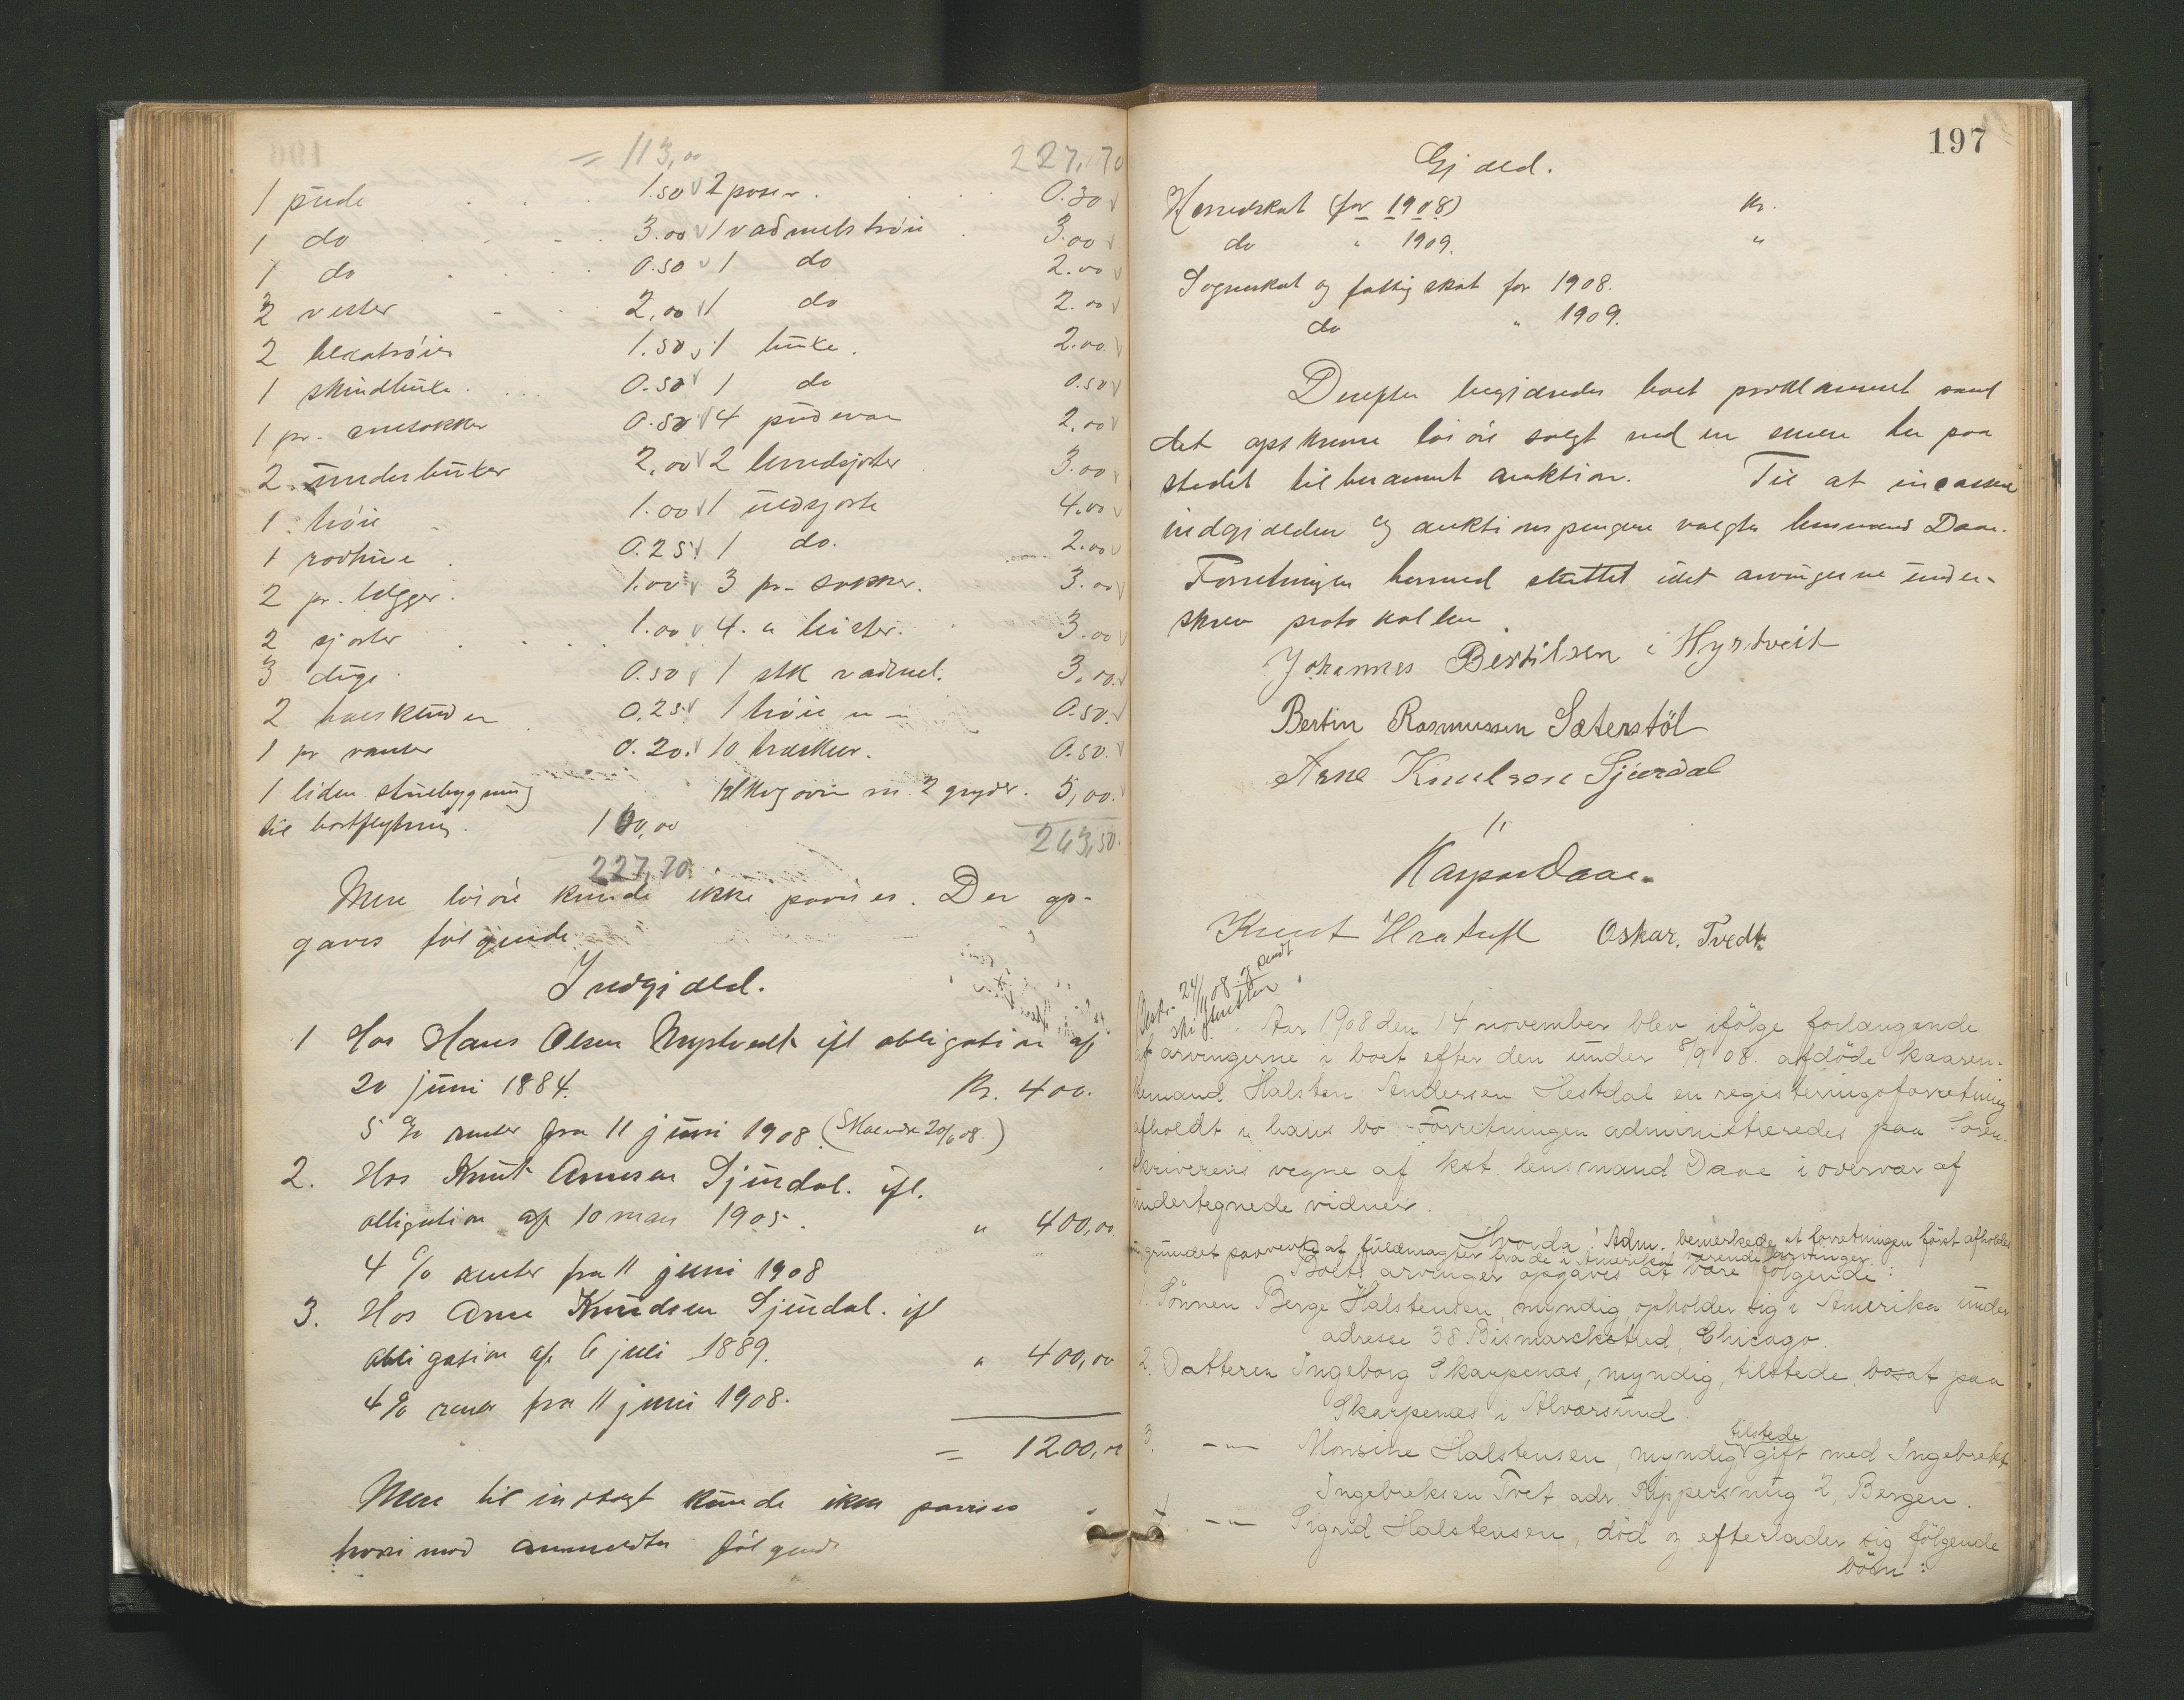 = 113,00 227,70
1 pude 1.50 2 poser. 0.30
1 do 3.00 1 vadmelstrøie 3.00
1 do 0.50 1 do 2.00
2 vester 2,00 1 do 2.00
2 1.50 1 buxe. 2.00
1 skindbuxe. 0.50 1 do 0.50
1 pr. 0.50 4 pudevar 2.00
2 underbuxer 2,00 2 3.00
1 trøie 1.00 1 uldsjorte 4.00
1 0.25 1 do. 2.00
2 pr. lægger. 1.00 3 pr. sokker. 3.00
2 sjorter 1.00 4. " leister. 3.00
3 duge 0.50 1 stk vadmel. 3,00.
2 halskluder 0.25 1 trøie 0.50.
1 pr vanter 0.20. 10 0.50.
1 liden stuebygning 2 gryder. 5,00.
til bortflytning. 100,00 243,50.
227,70
Mere løsøre kunde ikke paavises. Der op-
gaves følgende
Indgjæld.
1 Hos Hans Olsen ifl obligation af
20 juni 1884. Kr. 400.
5 % renter fra 11 juni 1908.
2. Hos Knut Arnesen Sjurdal. ifl.
obligation af 10 mars 1905. " 400,00
4 % renter fra 11 juni 1908
3. Hos Arne Knudsen Sjurdal. ifl
obligation af 6 juli 1889. " 400,00
4% renter fra 11 juni 1908.
= 1200,00
Mere til indtægt kunde ikke paavises
hvorimod anmeldtes følgende
197
Gjæld.
Herredskat (for 1908) Kr.
do " 1909. "
Sogneskat og fattigskat for 1908.
do " 1909.
Derefter begjæredes boet proklameret samt
det opskrevne løsøre solgt ved en senere her paa
stedet berammet auktion. Til at incassere
indgjælden og auktionspengene valgtes lensmand Daae.
Forretningen hermed sluttet idet arvingerne under-
skrev protokollen
Johannes Bertilsen i Hyrtveit
Bertin Rasmussen Sæterstöl
Arne Knutson Sjurdal
"
Kasper Daae.
Knut Oskar. Tvedt
24/11 08 og sendt
skifteretten
Aar 1908 den 14 november blev ifölge forlangende
af arvingerne i boet efter den under 8/9 08. afdöde kaaren-
kemand Halsten Andersen Hestdal en registeringsforretning
afholdt i hans bo. Forretningen administreredes paa Soren-
skriverens vegne af kst. lensmand Daae i overvær af
undertegnede vidner.
Adm. bemerkede at forretningen først afholdes
nu grundet paavente af fuldmagter fra de i Amerika værende arvinger.
Boets arvinger opgaves at være følgende:
1. Sønnen Berge Halstensen, myndig opholder sig i Amerika under
adresse 38 Bismarckstred, Chicago.
2. Datteren Ingeborg Skarpenæs, myndig, tilstede, bosat paa
Skarpenæs i Alvarsund.
tilstede
3. -"- Monsine Halstensen, myndig gift med Ingebrikt
Ingebreksen Tvet adr. 2, Bergen.
4. -"- Sigrid Halstensen, död og efterlader sig fölgende
börn: